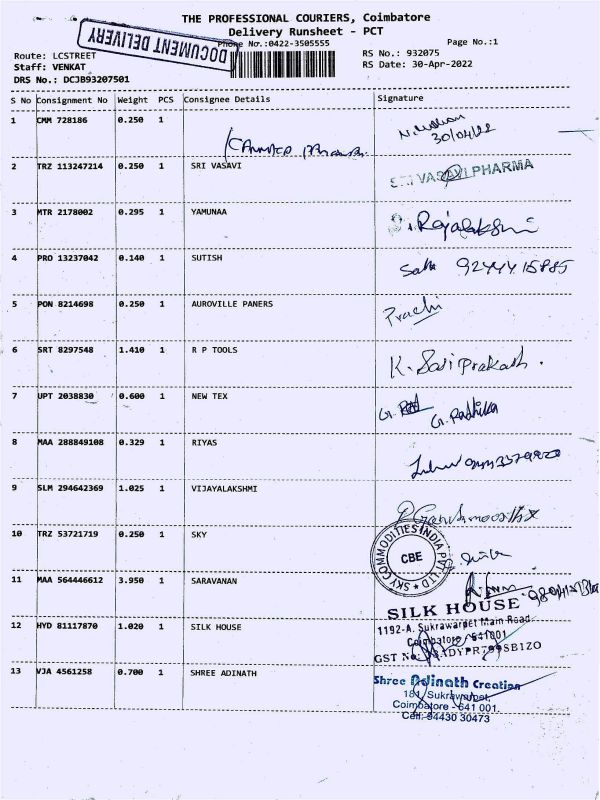 THE PROFESSIONAL COURIERS, Coimbatore
Delivery Runsheet - PCT
DOCUMENT DELIVERY
Phone No.:0422-3505555
Page No.:1
Route: LCSTREET
RS No.: 932075
Staff: VENKAT
RS Date: 30-Apr-2022
DRS No.: DCJB93207501
S No Consignment No Weight PCS Consignee Details Signature
1 CMM 728186 0.250 1
30/04/22
2 TRZ 113247214 0.250 1 SRI VASAVI SRI VASAVI PHARMA
3 MTR 2178002 0.295 1 YAMUNAA Rajalakshmi
4 PRO 13237042 0.140 1 SUTISH 9244415885
5 PON 8214698 0.250 1 AUROVILLE PANERS Prachi
6 SRT 8297548 1.410 1 R P TOOLS K. Sasiprakash.
7 UPT 2038830 0.600 1 NEW TEX G. Radhika
8 MAA 288849108 0.329 1 RIYAS
9 SLM 294642369 1.025 1 VIJAYALAKSHMI
10 TRZ 53721719 0.250 1 SKY
SKY COMMODITIES INDIA PVT LTD
CBE
11 MAA 564446612 3.950 1 SARAVANAN
SILK HOUSE
12 HYD 81117870 1.020 1 SILK HOUSE 1192-A, Sukrawarpet Main Road,
Coimbatore - 641001
GST No.
13 VJA 4561258 0.700 1 SHREE ADINATH Shree Adinath Creation
181, Sukrawarpet,
Coimbatore - 641 001.
Cell: 94430 30473